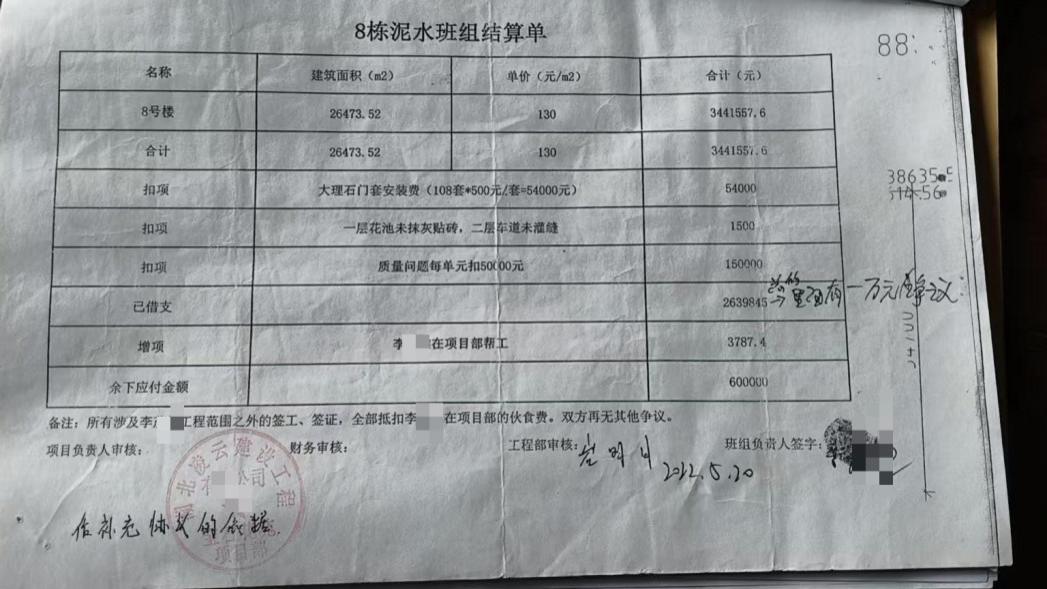 8栋泥水班组结算单
88:
名称 建筑面积（m2） 单价（元/m2） 合计（元）
8号楼 26473.52 130 3441557.6
合计 26473.52 130 3441557.6
扣项 大理石门套安装费（108套*500元/套=54000元） 54000
扣项 一层花池未抹灰贴砖，二层车道未灌缝 1500
扣项 质量问题每单元扣50000元 150000
已借支 2639845
有一万元 争议
增项 李 在项目部帮工 3787.4
余下应付金额 600000
备注：所有涉及李 工程范围之外的签工、签证，全部抵扣李 在项目部的伙食费。双方再无其他争议。
项目负责人审核： 财务审核： 工程部审核： 班组负责人签字：
2022.5.20
北浚云建设工程
公司
项目部
补充协议的